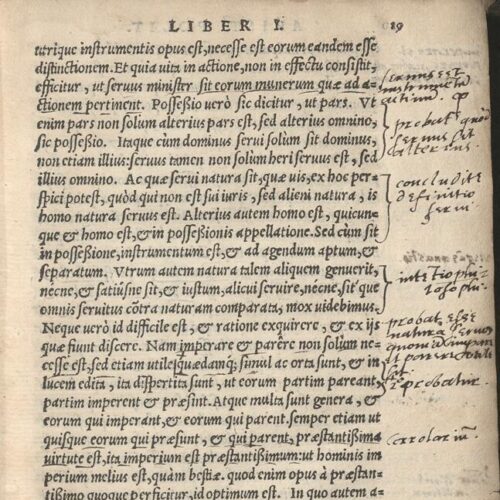 LIBER I. 19
utrique instrumentis opus est, necesse est eorum eandem esse
distinctionem. Et quia vita in actione, non in effectu consistit,
efficitur, ut seruus minister sit eorum munerum quæ ad a-
ctionem pertinent. Possessio verò sic dicitur, ut pars. Vt
enim pars non solum alterius pars est, sed alterius omnino,
sic possessio. Itaque cum dominus serui solùm sit dominus,
non etiam illius: seruus tamen non solùm heri seruus est, sed
illius omnino. Ac quæ serui natura sit, quæ vis, ex hoc per-
spici potest, quòd qui non est sui iuris, sed alieni natura, is
homo natura seruus est. Alterius autem homo est, quicun-
que & homo est, & in possessionis appellatione. Sed cum sit
in possessione, instrumentum est, & ad agendum aptum, &
separatum. Vtrum autem natura talem aliquem genuerit,
nécne, & satiúsne sit, & iustum, alicui seruire, nécne, sit que
omnis seruitus cõtra naturam comparata, mox videbimus.
Neque verò id difficile est, & ratione exquirere, & ex ijs
quæ fiunt discere. Nam imperare & parere non solùm ne-
cesse est, sed etiam utile: quædamq; simul ac orta sunt, & in
lucem edita, ita dispertita sunt, ut eorum partim pareant,
partim imperent & præsint. Atque multa sunt genera, &
eorum qui imperant, & eorum qui parent. semper etiam ut
quisque eorum qui præsunt, & qui parent, præstantissima
virtute est, ita imperium est præstantissimum: ut hominis im
perium melius est, quàm bestiæ. quod enim opus à præstan-
tissimo quoque perficitur, id optimum est. In quo autem a-
seruus est
instrumentũ
probat quod
seruus sit
alterius
concludit
definitio
serui
intẽtio phi
losophi
probat esse
natura seruũ